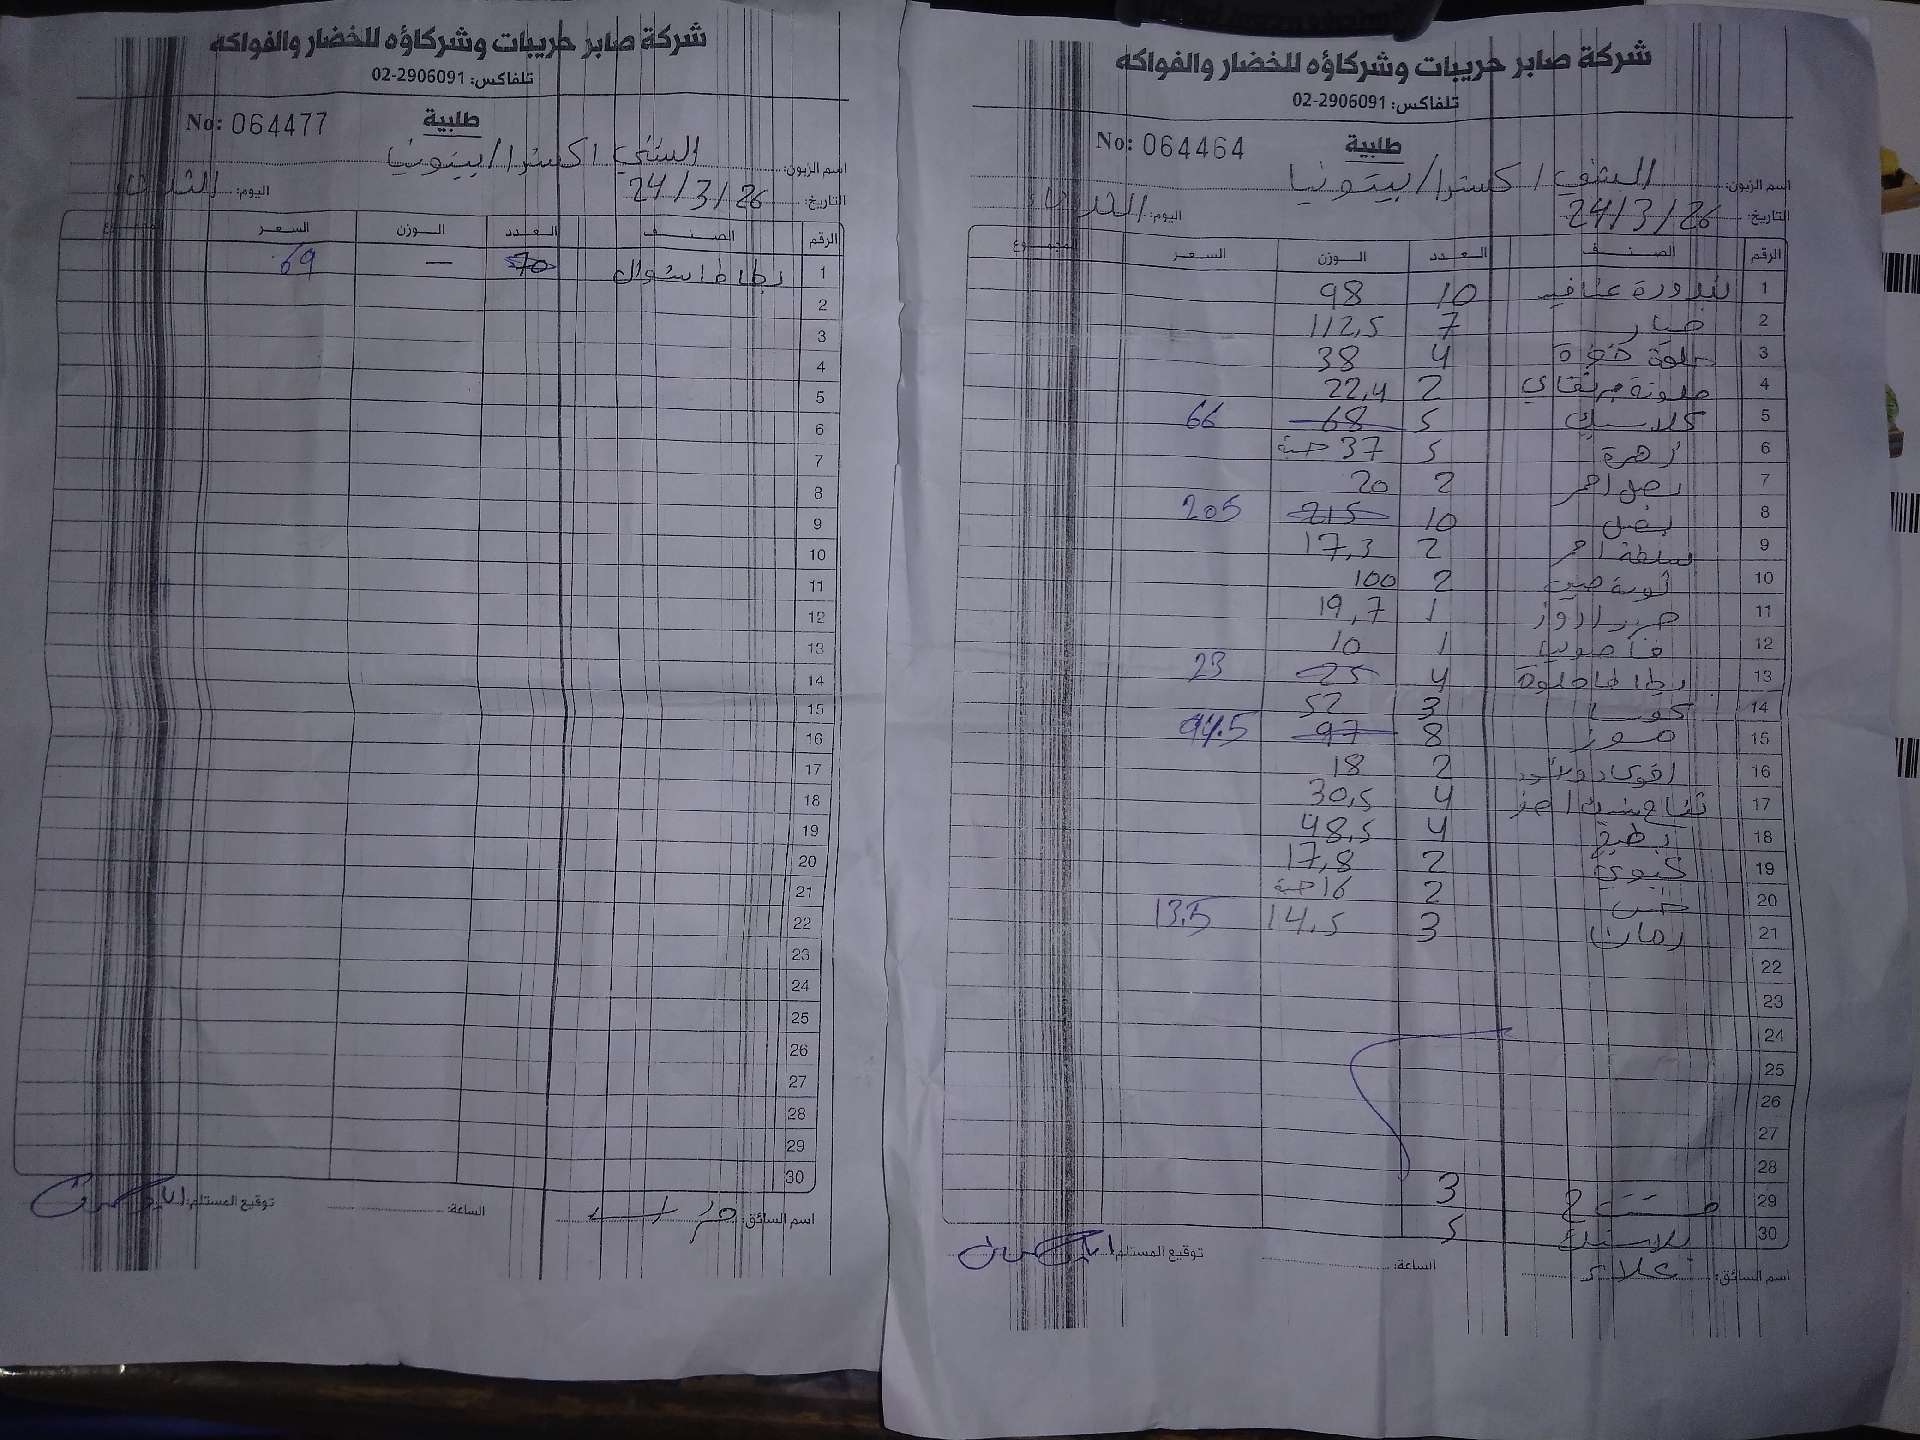 شركة صابر حريبات وشركاؤه للخضار والفواكه
تلفاكس: 02-2906091
No: 064464
طلبية
اسم الزبون: الشني اكسترا / بيتونيا
التاريخ: 24/3/26 اليوم: الثلاثاء
الرقم الصنف العدد الوزن السعر المجموع
1 بندورة عنافيد 10 98
2 خيار 7 112,5
3 حلوة 4 38
4 ملونة برتقالي 2 22,4
5 كلاسيك 5 68 66
6 زهرة 5 37 حبة
7 بصل احمر 2 20
8 بصل 10 215 205
9 سلطة احمر 2 17,3
10 2 100
11 جزر 1 19,7
12 فاصوليا 1 10
13 بطاطا حلوة 4 25 23
14 كوسا 3 52
15 موز 8 97 94.5
16 افوكادو 2 18
17 تفاح 4 30,5
18 بطيخ 4 48,5
19 كيوي 2 17,8
20 خس 2 16 حبة
21 رمان 3 14,5 13.5
22
23
24
25
26
27
28
29 3
30 بلاستك 5
توقيع المستلم:
الساعة:
اسم السائق: علاء
شركة صابر حريبات وشركاؤه للخضار والفواكه
تلفاكس: 02-2906091
No: 064477
طلبية
اسم الزبون: الشني اكسترا / بيتونيا
التاريخ: 24/3/26 اليوم: الثلاثاء
الرقم الصنف العدد الوزن السعر المجموع
1 بطاطا شوال 70 — 69
2
3
4
5
6
7
8
9
10
11
12
13
14
15
16
17
18
19
20
21
22
23
24
25
26
27
28
29
30
اسم السائق:
الساعة:
توقيع المستلم: